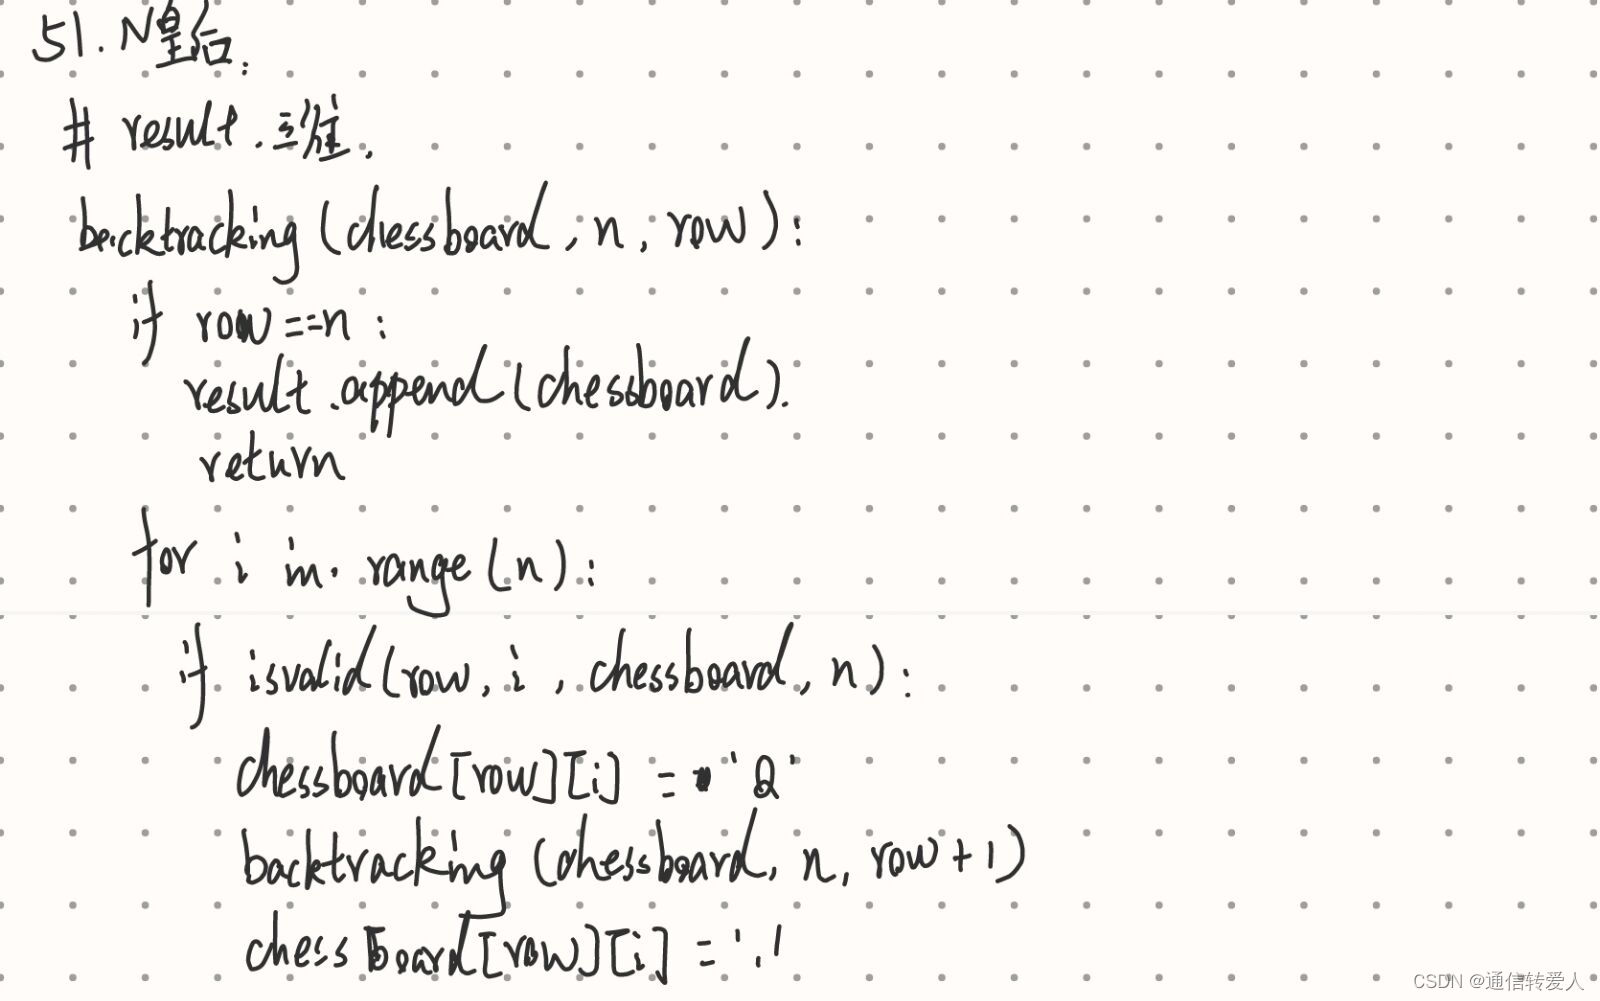 51. N皇后.
# result. 三维.
backtracking (chessboard, n, row):
if row == n:
result.append(chessboard).
return
for i in. range(n):
if isvalid(row, i, chessboard, n):
chessboard[row][i] = 'Q'
backtracking (chessboard, n, row+1)
chessboard[row][i] = '.'
CSDN @通信转爱人